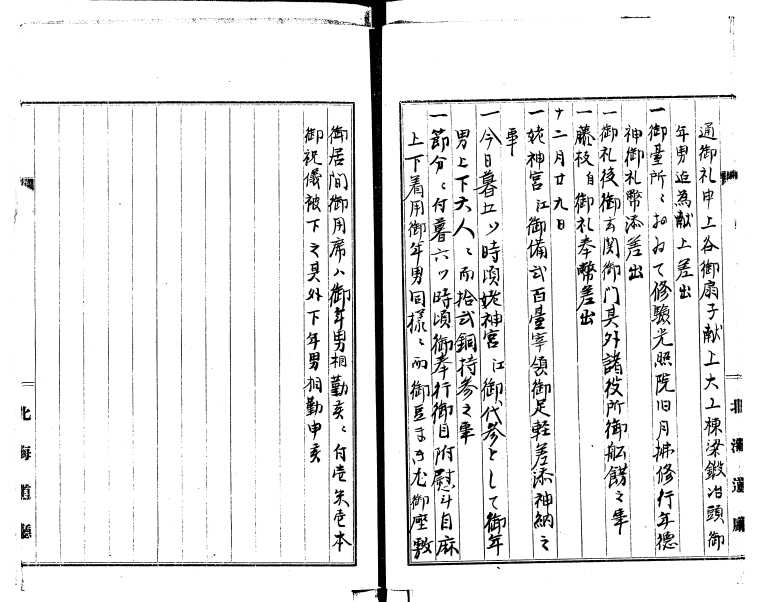 通御礼申上谷御扇子献上大工棟梁鍛冶頭御
年男迄為献上差出
一御臺所ニおゐて修驗光照院旧月拂修行年德
神御礼幣添差出
一御礼後御玄関御門其外諸役所御船餝之事
一藤枝自御礼奉幣差出
十二月廿九日
一姥神宮江御備弐百臺宰領御足軽差添神納之
事
一今日暮六ツ時頃姥神宮江御代参として御年
男上下六人ニ而拾弐銅持参之事
一節分ニ付暮六ツ時頃御奉行御目附熨斗目麻
上下着用御年男同様ニ而御豆まき尤御座敷
御居間御用席ハ御年男相勤亥ニ付壱矢壱本
御祝儀被下之其外下年男相勤申亥
北海道廳
北海道廳